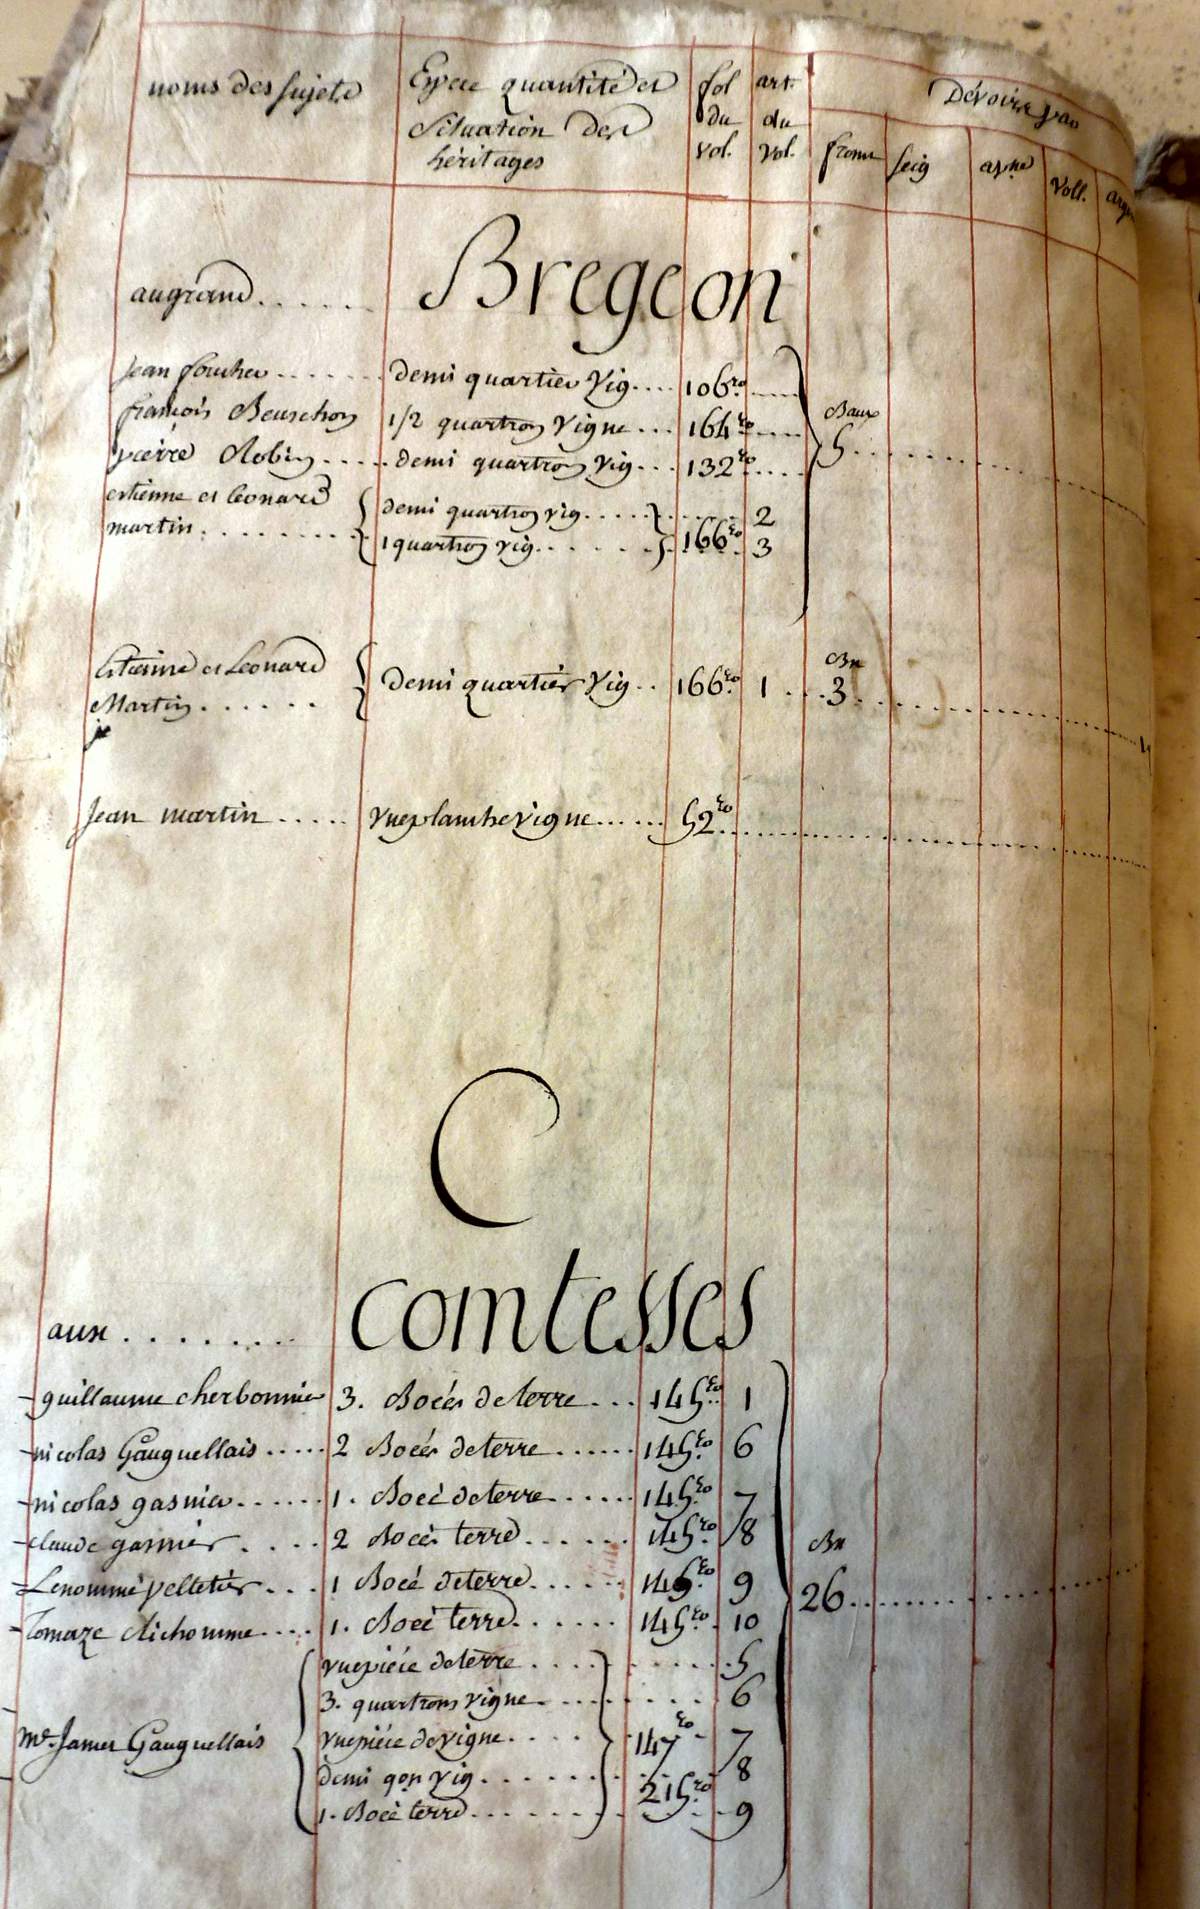 noms des sujets
Espece quantité et
situation des
héritages
fol
du
vol.
art.
du
vol.
Devoirs par
from
seig
avne
voll.
au grand ...... Bregeon
jean foucher ....... demi quartier vig.... 106 ro ....
françois Beuschon 1/2 quartron vigne ... 164 ro ....
pierre Robin ..... demi quartron vig... 132 ro ....
Baux
5
estienne et leonard
martin ........
demi quartron vig ..... 2
1 quartron vig ...... 166 ro 3
Estienne et Leonard
Martin ......
je
demi quartier vig .. 166 ro 1 ...
Bx
3
Jean martin ..... vne planche vigne ...... 52 ro
C
aux ........ comtesses
guillaume cherbonnier 3. Boées de terre ... 145 ro 1
nicolas Gauguellais ..... 2 Boées de terre ...... 145 ro 6
nicolas gasnier ...... 1. Boeé de terre ..... 145 ro 7
claude garnier .... 2 Boées terre ...... 145 ro 8
Bx
26
Lenommé pelletier ... 1 Boeé de terre ...... 145 ro 9
Tomaze Lichomme .... 1. Boeé terre ...... 145 ro 10
vne piéce de terre .... 5
3. quartrons vigne .... 6
mr. James Gauguellais vne piéce de vigne .... 147 ro 7
demi qon vig ...... 8
215 ro
1. Boeé terre ....... 9